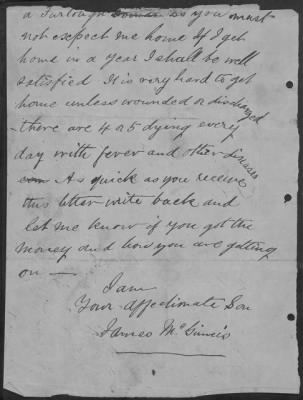 a Furlough so you must
not expect me home If I get
home in a year I shall be well
satisfied It is very hard to get
home unless wounded or discharged
there are 4 or 5 dying every
day with fever and other diseases
As quick as you receive
this letter write back and
let me know if you got the
money and how you are getting
on —
I am
Your affectionate Son
James McGinnis